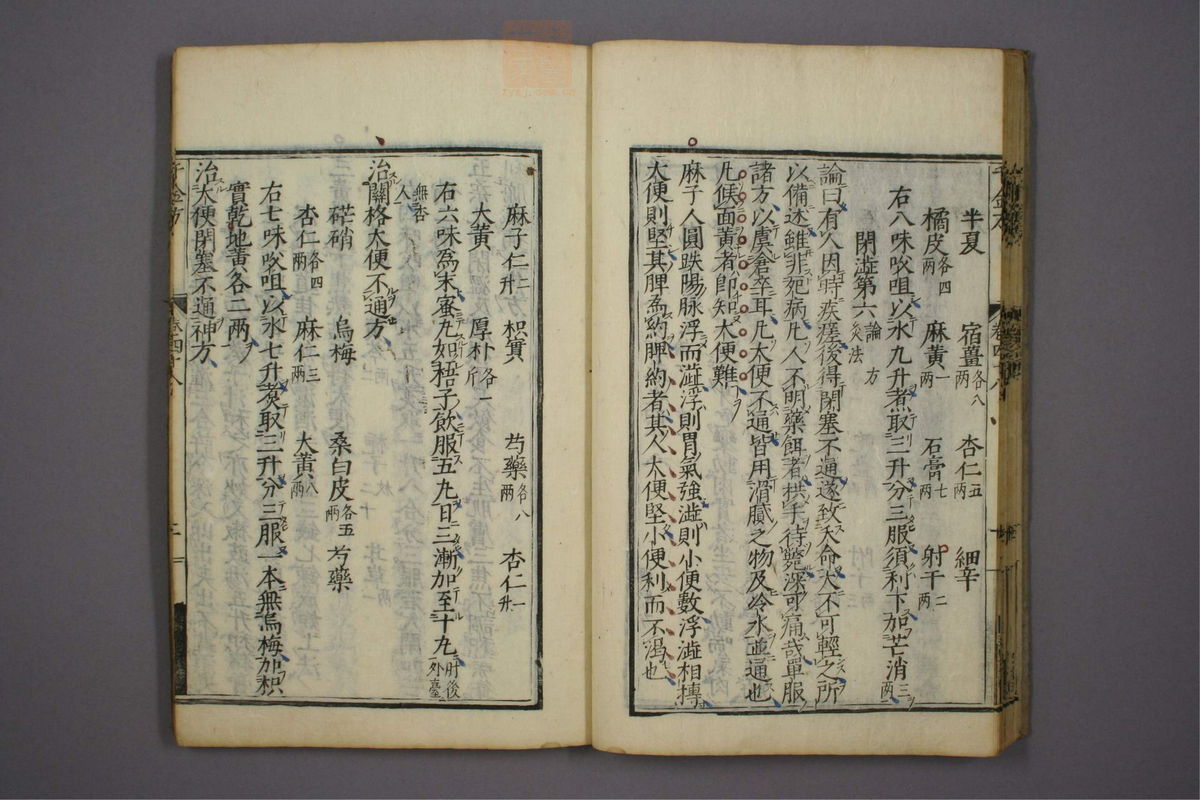 半夏 宿薑各八兩 杏仁五兩 細辛
橘皮各四兩 麻黃一兩 石膏七兩 射干二兩
右八味㕮咀以水九升煮取三升分三服須利下加芒消三兩
閉澁第六論 方 灸法
論曰有人因時疾瘥後得閉塞不通遂致夭命大不可輕之所
以備述雖非死病凡人不明藥餌者拱手待斃深可痛哉單服
諸方以虞倉卒耳凡大便不通皆用滑膩之物及冷水並通也
凡候面黃者即知大便難
麻子人圓趺陽脉浮而澁浮則胃氣強澁則小便數浮澁相摶
大便則堅其脾爲約脾約者其人大便堅小便利而不渴也
麻子仁二升 枳實 芍藥各八兩 杏仁一升
大黃 厚朴各一斤
右六味爲末蜜丸如梧子飲服五丸日三漸加至十丸肘後外臺
無杏人
治關格大便不通方
芒硝 烏梅 桑白皮各五兩 芍藥
杏仁各四兩 麻仁三兩 大黃八兩
右七味㕮咀以水七升煑取三升分三服一本無烏梅加枳
實乾地黃各二兩
治大便閉塞不通神方